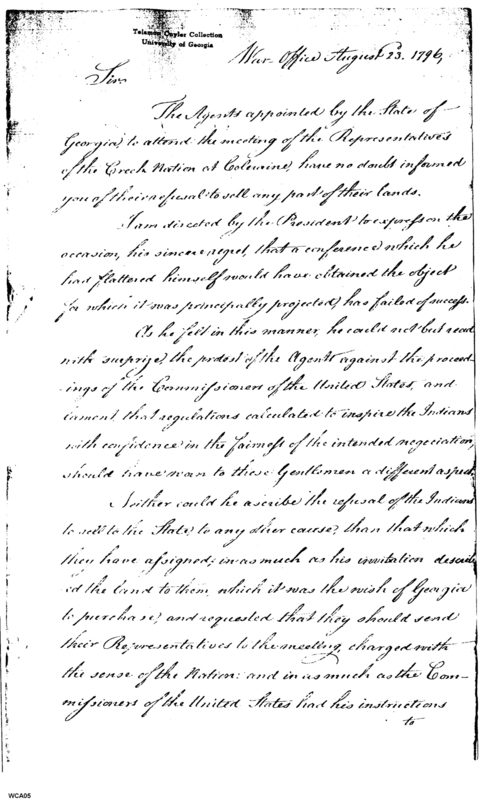 Telamon Cuyler Collection
University of Georgia
War Office August 23. 1796,
Sir
The Agents appointed by the State of
Georgia, to attend the meeting of the Representatives
of the Creek Nation at Coleraine, have no doubt informed
you of their refusal to sell any part of their lands.
I am directed by the President to express on the
occasion, his sincere regret, that a conference which he
had flattered himself would have obtained the object
for which it was principally projected, has failed of success.
As he felt in this manner, he could not but read
with surprize, the protest of the Agents against the proceed-
ings of the Commissioners of the United States, and
lament that regulations calculated to inspire the Indians
with confidence in the fairness of the intended negociation,
should have worn to these Gentlemen a different aspect.
Neither could he ascribe the refusal of the Indians
to sell to the State, to any other cause, than that which
they have assigned; in as much as his invitation describ
ed the land to them, which it was the wish of Georgia
to purchase, and requested that they should send
their Representatives to the meeting, charged with
the sense of the Nation: and in as much as the Com-
missioners of the United States had his instructions
to
WCA05